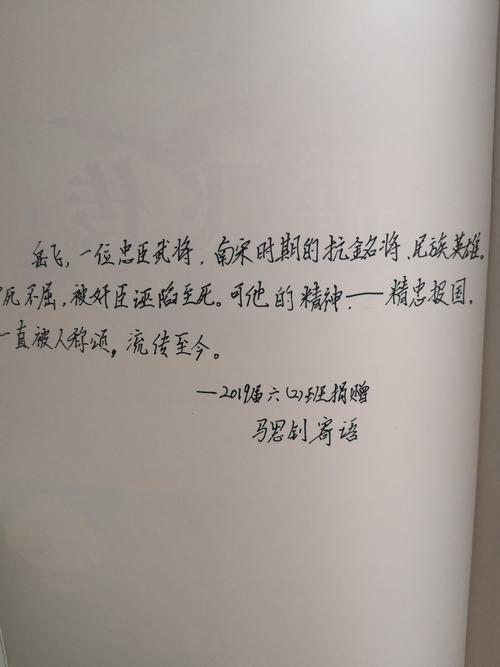 岳飞,一位忠臣武将,南宋时期的抗金名将,民族英雄。
死不屈,被奸臣诬陷至死。可他的精神——精忠报国,
一直被人称颂,流传至今。
—2019届六(2)班捐赠
马思钊寄语